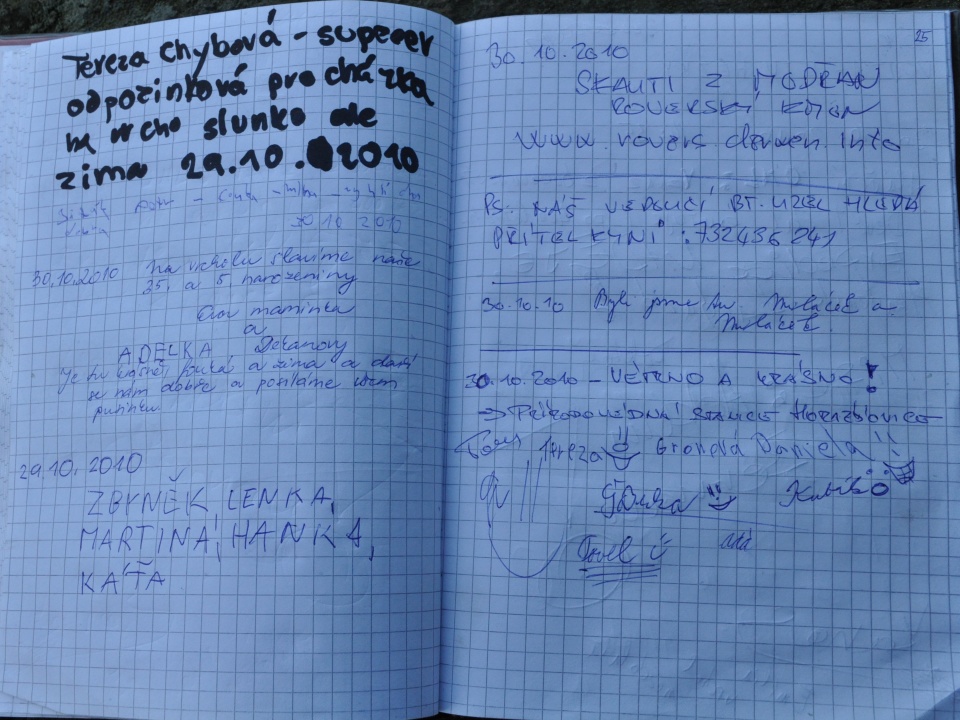 Tereza Chybová - supeeer
odpočinková procházka
na vrcho slunko ale
zima 29.10. 2010
30 10 2010
30.10.2010 Na vrcholu slavíme naše
35. a 5. narozeniny
maminka
a
ADÉLKA
Je tu a zima a daří
se nám dobře a posíláme všem
pusinku.
29.10. 2010
ZBYNĚK, LENKA,
MARTINA, HANKA,
KÁŤA
25
30.10.2010
SKAUTI Z MODŘAN
ROVERSKÝ KMEN
www.rovers.cerven.info
PS. NÁŠ VEDOUCÍ BT. UZEL HLEDÁ
PŘÍTELKYNÍ : 732436241
30.10.10 Byli jsme tu. Miláček a
Miláček.
30.10.2010 - VĚTRNO A KRÁSNO!
=> PŘÍRODOVĚDNÁ STANICE HORAŽĎOVICE
Tereza Daniela
Kubík
Pavel Č